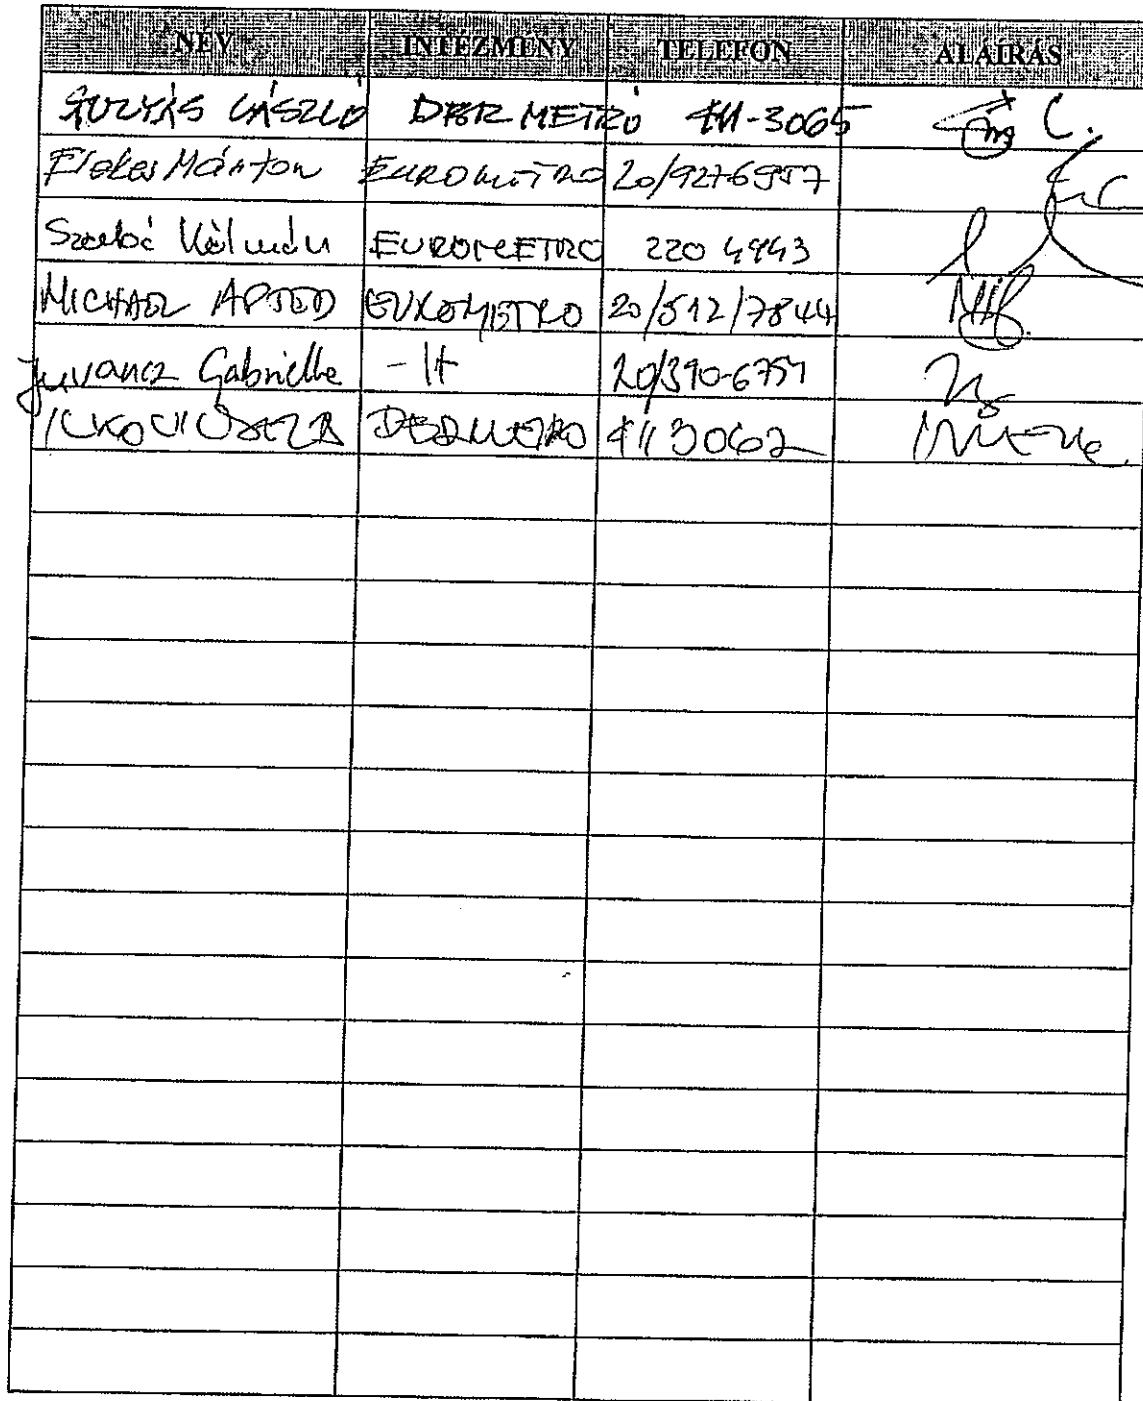 NÉV INTÉZMÉNY TELEFON ALÁÍRÁS
GULYÁS LÁSZLÓ DBR METRÓ 411-3065
Elekes Márton EUROMETRO 20/9276957
Szabó Kálmán EUROMETRO 220 4943
MICHAEL APTED EUROMETRO 20/512/7844
Juvancz Gabriella - 11 20/390-6751
DBR METRO 411 3062